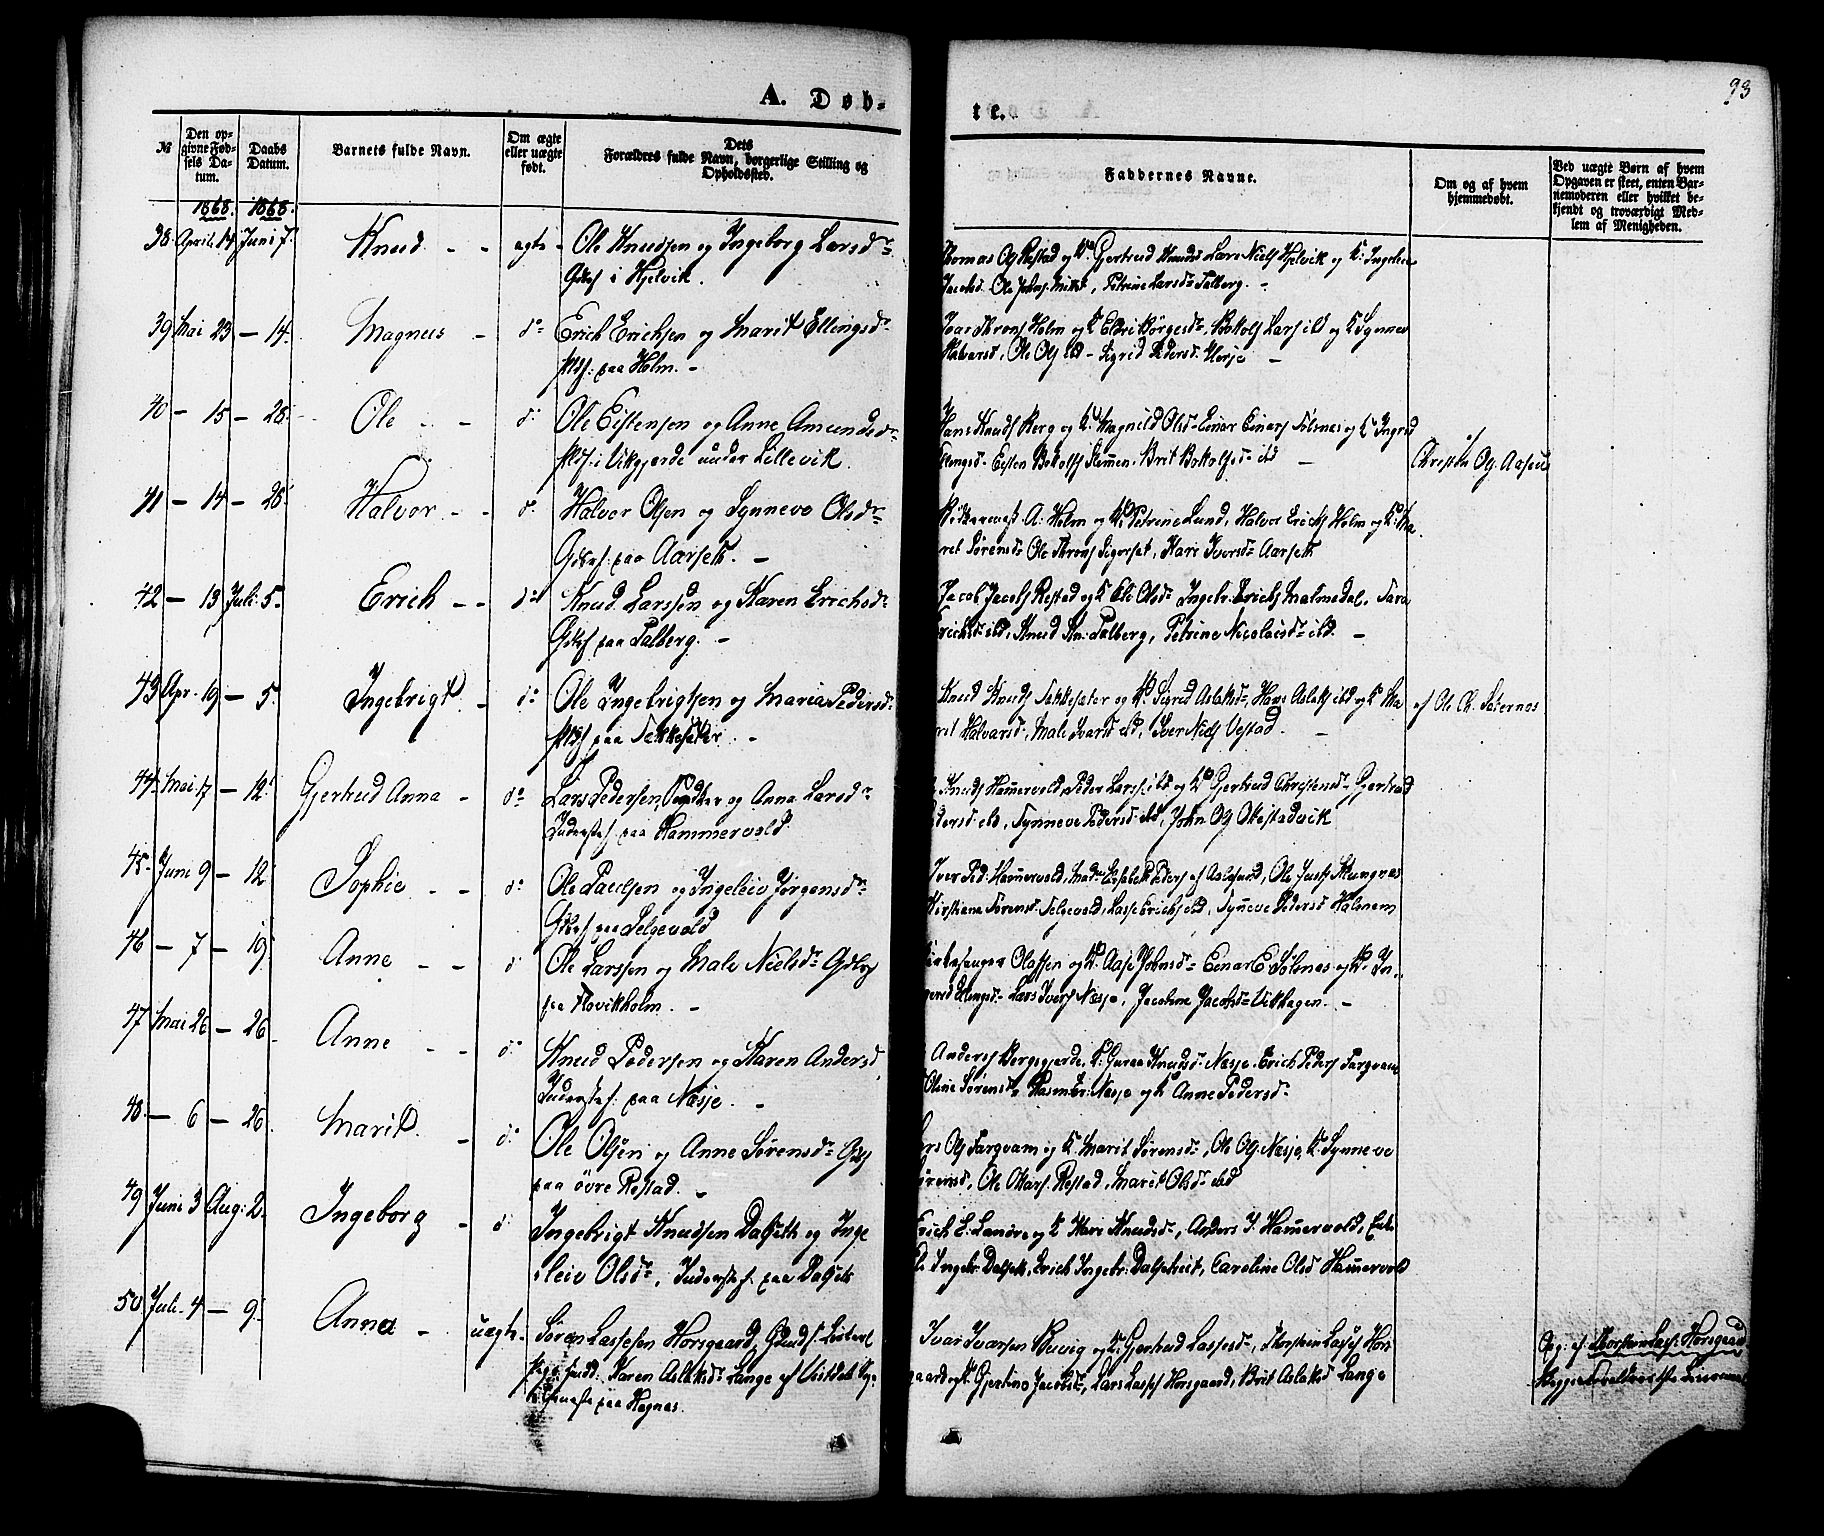 93
A. Døb-
te.
№
Den opgivne Fødsels Datum.
Daabs Datum.
Barnets fulde Navn.
Om ægte eller uægte født.
Dets Forældres fulde Navn, borgerlige Stilling og Opholdssted.
Faddernes Navne.
Om og af hvem hjemmedøbt.
Ved uægte Børn af hvem Opgaven er skeet, enten Barnemoderen eller hvilket bekjendt og troværdigt Medlem af Menigheden.
1868. 1868.
38. April 14 Juni 7. Knud - - ægte - Ole Knudsen og Ingeborg Larsdr
Gbrf i Hjelvik.
Thomas Restad og Gjertrud Knuds Lars Niels Hjelvik og K Ingeleiv
Jacobsd. Ole Johns. Petrine Larsdr Talberg. -
39 Mai 23 - 14. Magnus - do Erich Erichsen og Marit Ellingsdr
paa Holm. -
Ivar Throns Holm og K Eldri Børgesdr, Botolf Lars ibd og K Synnev
Halvarsd, Ole Ols ibd - Sigrid Pedersd. Herje -
40 - 15 - 28. Ole - - do Ole Eistensen og Anne Amundsdr
i Vikgjerde under Lillevik.
Hans Knuds Berg og K Magnild Olsdr Einar Einars Sølsnes og K Ingrid
Ellingsd. Eisten Botolfs Brit Botolfsdr ibd -
Christen Ols. Aasen
41 - 14 - 28. Halvor - - do Halvor Olsen og Synneve Olsdr
Gbrf. paa Aarseth. -
A. Holm og K. Petrine Lund, Halvor Erichs Holm og K. Ma
ret Sørensdr Ole Throns Sigerset, Kari Iversdr Aarseth
42 - 13 Juli 5. Erich - - do Knud Larssen og Karen Erichsdr
Gbrf paa Talberg. -
Jacob Jacobs Restad og K Ele Olsdr Ingebr. Erichs Malmedal. Sara
Erichsdr ibd, Knud Kn. Talberg, Petrine Nicolaisdr ibd. -
43 Apr. 19 - 5. Ingebrigt. - do Ole Ingebrigtsen og Maria Pedersdr
paa Sekkesæter. -
Knud Knuds Sekkesæter og K. Sigrid Aslaksdr Hans Aslaks ibd og K Ma
rit Halvarsd., Male Ivarsd ibd, Iver Niels Vestad. -
af Ole Ch. Sæternes
44. Mai 17 - 12. Gjertrud Anna - do Lars Pedersen og Anna Larsdr
Inderstef. paa Hammervold.
Knuds Hammervold, Peder Lars ibd og K Gjertrud Christensdr Gjertrud
Pedersd ibd, Synneve Pedersd ibd, John Ols Okestadvik
45. Juni 9 - 12 Sophie - - do Ole Paulsen og Ingeleiv Jørgensdr
Gbrf paa Selgevold
Iver Ped. Hammervold, Mad. Elisabeth Peders af Aalesund, Ole Justs
Kirstiane Sørensd. Selgevold, Lasse Erichs ibd, Synneve Pedersd Halsnem
46 - 7 - 19. Anne - - do Ole Larssen og Male Nielsdr
paa Flovikholm. -
Kirkesanger Olassen og K. Aase Johnsdr Einar E. Sølsnes og K. In
gerid Ellingsdr Lars Ivers Næsje, Jacobine Jacobsdr Vikhagen. -
47 Mai 26 - 26. Anne - - do Knud Pedersen og Karen Andersd
Inderstef. paa Næsje. -
Anders Bergsgjerde. K. Guraa Knudsdr Næsje. Erich Peders Fargvam
Oline Sørensdr Rasm. Er. Næsje og K Anne Pedersdr
48. - 6 - 26. Marit. - do Ole Olsen og Anne Sørensdr
paa øvre Restad. -
Ols Fargvam og K. Marit Sørensdr, Ole Ols. Næsje, K. Synneve
Sørensd, Ole Olars. Restad, Marit Olsdr ibd
49 Juni 3 Aug: 2. Ingeborg - do Ingebrigt Knudsen Dalseth og Inge
leiv Olsdr, Inderstef. paa Dalseth
Erich E. Landre og K Kari Knudsdr, Anders J. Hammervold,
Ingebr. Dalseth, Erich Ingebr. Dalseth, Caroline Olsd Hammervold
50 Juli 4 - 9. Anna - uægte - Søren Lassesen Horsgaard,
Karen Aslaksdr Lange af
paa Hegnes.
Ivar Ivarsen og K. Gjertrud Lassesdr, Thorstein Lass. Hors
gaard og K. Gjertine Jacobsdr, Lars Lasses Horsgaard, Brit Aslaksd Lange
Opg: af. Thorstein Lass. Horsgaard